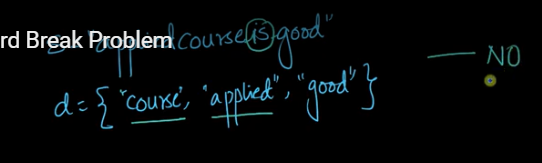 rd Break Problem
courseisgood"
NO
d = { "course", "applied", "good" }